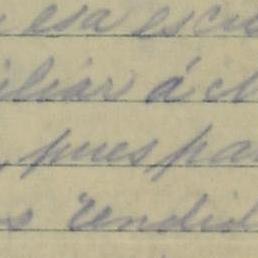 esa escu
iliar á ch
, pues par
s rendid